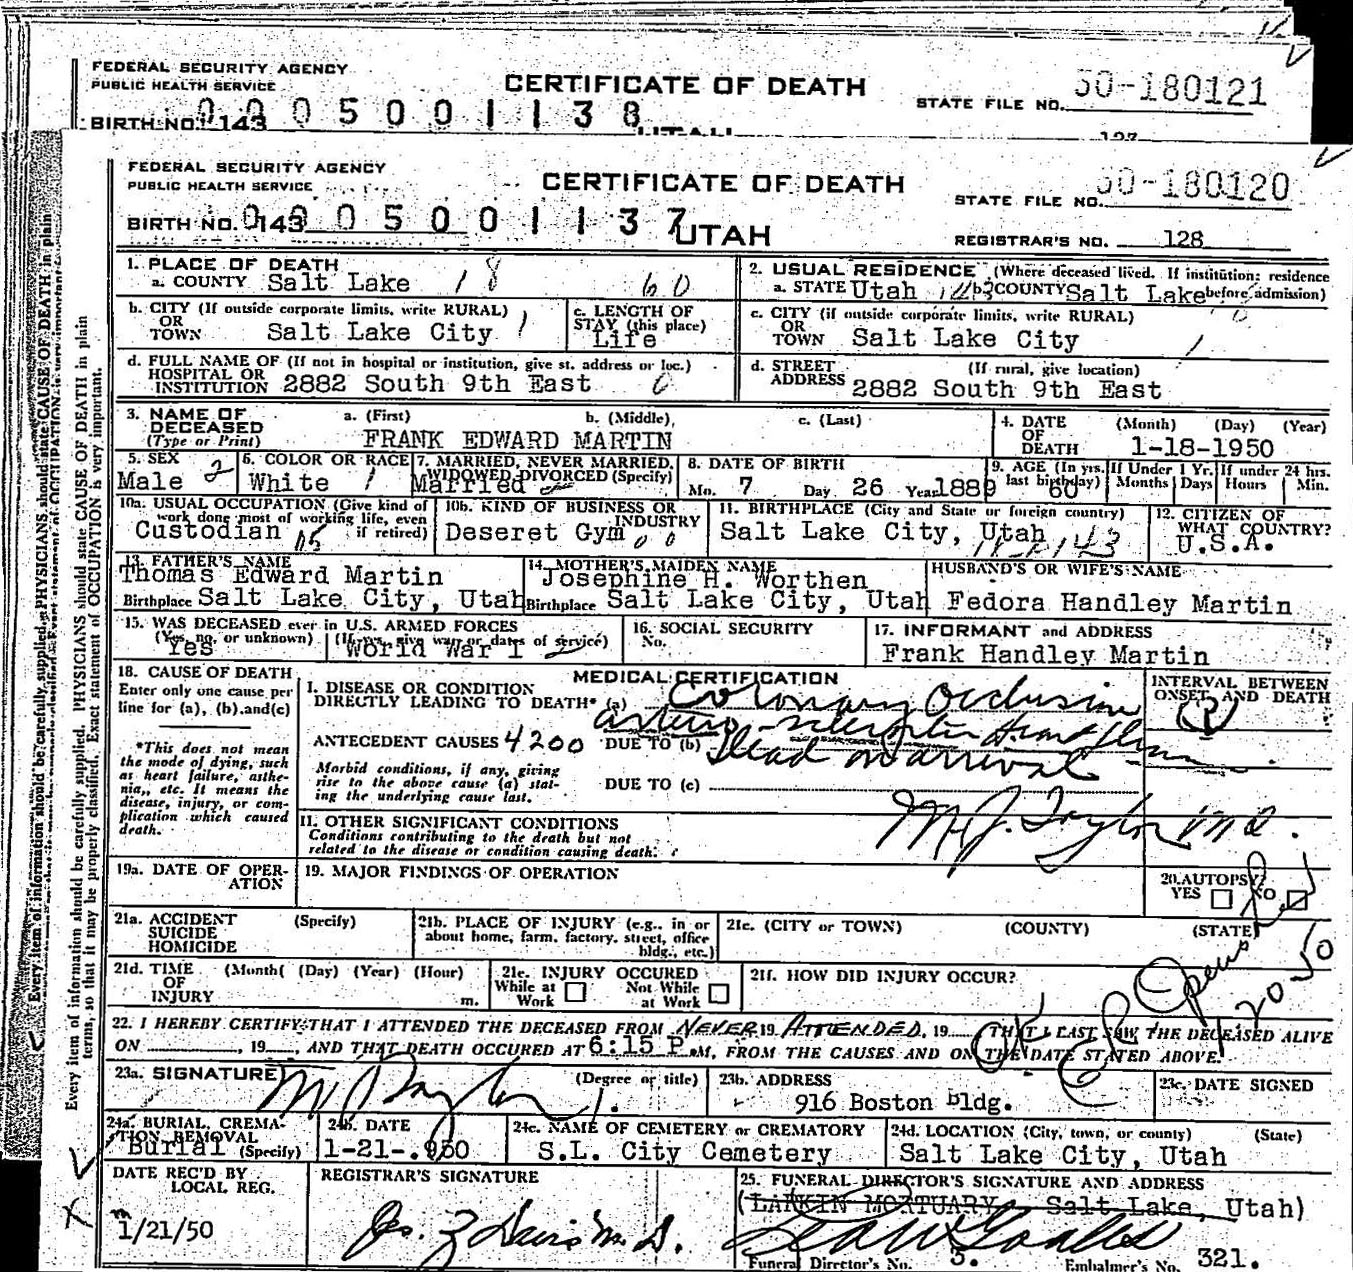 FEDERAL SECURITY AGENCY
PUBLIC HEALTH SERVICE
CERTIFICATE OF DEATH
STATE FILE NO. 50-180121
BIRTH NO. 143 0005001138
UTAH
127
FEDERAL SECURITY AGENCY
PUBLIC HEALTH SERVICE
CERTIFICATE OF DEATH
STATE FILE NO. 50-180120
BIRTH NO. 143 0005001137 UTAH
REGISTRAR'S NO. 128
1. PLACE OF DEATH
a. COUNTY Salt Lake 18 60
2. USUAL RESIDENCE (Where deceased lived. If institution: residence before admission)
a. STATE Utah 143 b. COUNTY Salt Lake
b. CITY (If outside corporate limits, write RURAL)
OR TOWN Salt Lake City 1
c. LENGTH OF STAY (this place)
Life
c. CITY (if outside corporate limits, write RURAL)
OR TOWN Salt Lake City 1
d. FULL NAME OF (If not in hospital or institution, give st. address or loc.)
HOSPITAL OR INSTITUTION 2882 South 9th East 0
d. STREET ADDRESS (If rural, give location)
2882 South 9th East
3. NAME OF DECEASED (Type or Print)
a. (First) b. (Middle) c. (Last)
FRANK EDWARD MARTIN
4. DATE OF DEATH (Month) (Day) (Year)
1-18-1950
5. SEX
Male 2
6. COLOR OR RACE
White 1
7. MARRIED, NEVER MARRIED, WIDOWED DIVORCED (Specify)
Married
8. DATE OF BIRTH
Mo. 7 Day 26 Year 1889
9. AGE (In yrs. last birthday) 60
If Under 1 Yr. Months Days
If under 24 hrs. Hours Min.
10a. USUAL OCCUPATION (Give kind of work done most of working life, even if retired)
Custodian
10b. KIND OF BUSINESS OR INDUSTRY
Deseret Gym
11. BIRTHPLACE (City and State or foreign country)
Salt Lake City, Utah 143
12. CITIZEN OF WHAT COUNTRY?
U.S.A.
13. FATHER'S NAME
Thomas Edward Martin
Birthplace Salt Lake City, Utah
14. MOTHER'S MAIDEN NAME
Josephine H. Worthen
Birthplace Salt Lake City, Utah
HUSBAND'S OR WIFE'S NAME
Fedora Handley Martin
15. WAS DECEASED ever in U.S. ARMED FORCES
(Yes, no, or unknown) (If yes, give war or dates of service)
Yes World War I
16. SOCIAL SECURITY No.
17. INFORMANT and ADDRESS
Frank Handley Martin
18. CAUSE OF DEATH
Enter only one cause per line for (a), (b), and (c)
*This does not mean the mode of dying, such as heart failure, asthenia, etc. It means the disease, injury, or complication which caused death.
MEDICAL CERTIFICATION
I. DISEASE OR CONDITION DIRECTLY LEADING TO DEATH* (a) Coronary Occlusion
INTERVAL BETWEEN ONSET AND DEATH
ANTECEDENT CAUSES 4200 DUE TO (b) arterio-sclerotic heart
Dead on arrival
Morbid conditions, if any, giving rise to the above cause (a) stating the underlying cause last.
DUE TO (c)
M. J. Taylor M.D.
II. OTHER SIGNIFICANT CONDITIONS
Conditions contributing to the death but not related to the disease or condition causing death.
19a. DATE OF OPERATION
19. MAJOR FINDINGS OF OPERATION
20. AUTOPSY?
YES NO
21a. ACCIDENT SUICIDE HOMICIDE (Specify)
21b. PLACE OF INJURY (e.g., in or about home, farm, factory, street, office bldg., etc.)
21c. (CITY or TOWN) (COUNTY) (STATE)
21d. TIME OF INJURY (Month( (Day) (Year) (Hour) m.
21e. INJURY OCCURED
While at Work Not While at Work
21f. HOW DID INJURY OCCUR?
OK 1-20-50
22. I HEREBY CERTIFY THAT I ATTENDED THE DECEASED FROM NEVER 19 ATTENDED, 19 THAT I LAST SAW THE DECEASED ALIVE
ON , 19 , AND THAT DEATH OCCURED AT 6:15 P.M, FROM THE CAUSES AND ON THE DATE STATED ABOVE.
23a. SIGNATURE (Degree or title)
23b. ADDRESS
916 Boston bldg.
23c. DATE SIGNED
24a. BURIAL, CREMATION, REMOVAL (Specify)
Burial
24b. DATE
1-21-.950
24c. NAME OF CEMETERY or CREMATORY
S.L. City Cemetery
24d. LOCATION (City, town, or county) (State)
Salt Lake City, Utah
DATE REC'D BY LOCAL REG.
1/21/50
REGISTRAR'S SIGNATURE
25. FUNERAL DIRECTOR'S SIGNATURE AND ADDRESS
(LARKIN MORTUARY Salt Lake, Utah)
Funeral Director's No. 5. Embalmer's No. 321.
Every item of information should be carefully supplied. PHYSICIANS should state CAUSE OF DEATH in plain
terms, so that it may be properly classified. Exact statement of OCCUPATION is very important.